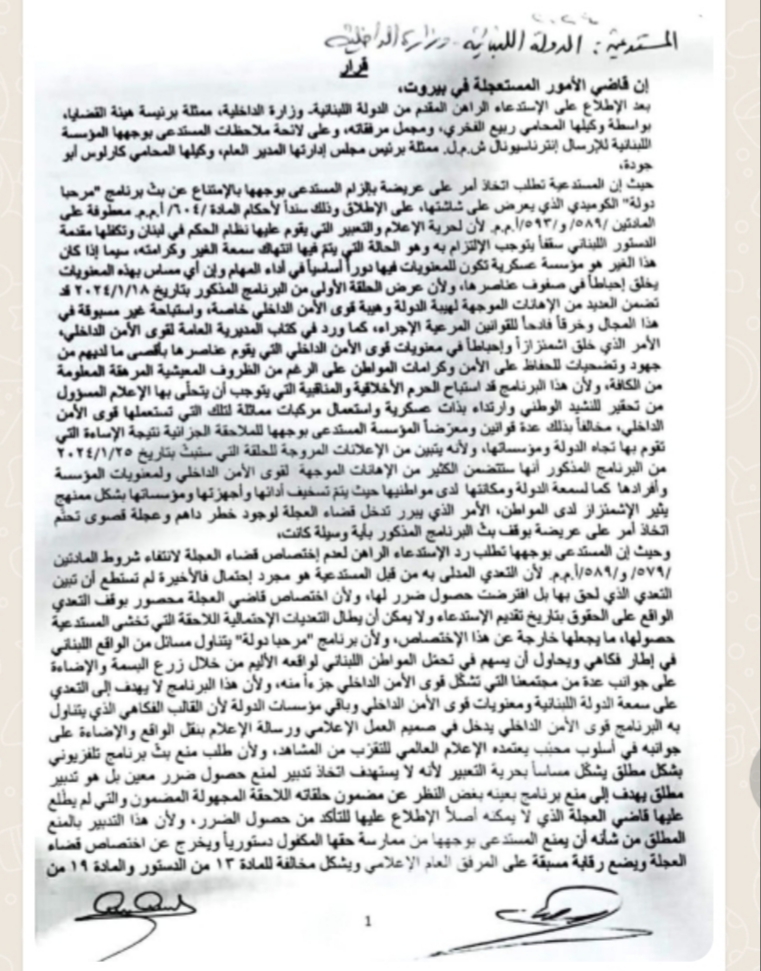 ٢٠٢٤
المستدعية: الدولة اللبنانية - وزارة الداخلية
قرار
إن قاضي الأمور المستعجلة في بيروت،
بعد الإطلاع على الإستدعاء الراهن المقدم من الدولة اللبنانية- وزارة الداخلية، ممثلة برئيسة هيئة القضايا،
بواسطة وكيلها المحامي ربيع الفخري، ومجمل مرفقاته، وعلى لائحة ملاحظات المستدعى بوجهها المؤسسة
اللبنانية للإرسال إنترناسيونال ش.م.ل. ممثلة برئيس مجلس إدارتها المدير العام، وكيلها المحامي كارلوس أبو
جودة،
حيث إن المستدعية تطلب اتخاذ أمر على عريضة بإلزام المستدعى بوجهها بالإمتناع عن بث برنامج "مرحبا
دولة" الكوميدي الذي يعرض على شاشتها، على الإطلاق وذلك سنداً لأحكام المادة /٦٠٤/ أ.م.م. معطوفة على
المادتين /٥٨٩/ و/٥٩٣/أ.م.م. لأن لحرية الإعلام والتعبير التي يقوم عليها نظام الحكم في لبنان وتكفلها مقدمة
الدستور اللبناني سقفاً يتوجب الإلتزام به وهو الحالة التي يتم فيها انتهاك سمعة الغير وكرامته، سيما إذا كان
هذا الغير هو مؤسسة عسكرية تكون للمعنويات فيها دوراً أساسياً في أداء المهام وإن أي مساس بهذه المعنويات
يخلق إحباطاً في صفوف عناصرها، ولأن عرض الحلقة الأولى من البرنامج المذكور بتاريخ ٢٠٢٤/١/١٨ قد
تضمن العديد من الإهانات الموجهة لهيبة الدولة وهيبة قوى الأمن الداخلي خاصة، واستباحة غير مسبوقة في
هذا المجال وخرقاً فادحاً للقوانين المرعية الإجراء، كما ورد في كتاب المديرية العامة لقوى الأمن الداخلي،
الأمر الذي خلق اشمئزازاً وإحباطاً في معنويات قوى الأمن الداخلي التي يقوم عناصرها بأقصى ما لديهم من
جهود وتضحيات للحفاظ على الأمن وكرامات المواطن على الرغم من الظروف المعيشية المرهقة المعلومة
من الكافة، ولأن هذا البرنامج قد استباح الحرم الأخلاقية والمناقبية التي يتوجب أن يتحلّى بها الإعلام المسؤول
من تحقير للنشيد الوطني وارتداء بذات عسكرية واستعمال مركبات مماثلة لتلك التي تستعملها قوى الأمن
الداخلي، مخالفاً بذلك عدة قوانين ومعرّضاً المؤسسة المستدعى بوجهها للملاحقة الجزائية نتيجة الإساءة التي
تقوم بها تجاه الدولة ومؤسساتها، ولأنه يتبين من الإعلانات المروجة للحلقة التي ستبث بتاريخ ٢٠٢٤/١/٢٥
من البرنامج المذكور أنها ستتضمن الكثير من الإهانات الموجهة لقوى الأمن الداخلي ولمعنويات المؤسسة
وأفرادها كما لسمعة الدولة ومكانتها لدى مواطنيها حيث يتم تسخيف أدائها وأجهزتها ومؤسساتها بشكل ممنهج
يثير الإشمئزاز لدى المواطن، الأمر الذي يبرر تدخل قضاء العجلة لوجود خطر داهم وعجلة قصوى تحتّم
اتخاذ أمر على عريضة بوقف بث البرنامج المذكور بأية وسيلة كانت،
وحيث إن المستدعى بوجهها تطلب رد الإستدعاء الراهن لعدم إختصاص قضاء العجلة لانتفاء شروط المادتين
/٥٧٩/ و/٥٨٩/أ.م.م. لأن التعدي المدلى به من قبل المستدعية هو مجرد إحتمال فالأخيرة لم تستطع أن تبين
التعدي الذي لحق بها بل افترضت حصول ضرر لها، ولأن اختصاص قاضي العجلة محصور بوقف التعدي
الواقع على الحقوق بتاريخ تقديم الإستدعاء ولا يمكن أن يطال التعديات الإحتمالية اللاحقة التي تخشى المستدعية
حصولها، ما يجعلها خارجة عن هذا الإختصاص، ولأن برنامج "مرحبا دولة" يتناول مسائل من الواقع اللبناني
في إطار فكاهي ويحاول أن يسهم في تحمّل المواطن اللبناني لواقعه الأليم من خلال زرع البسمة والإضاءة
على جوانب عدة من مجتمعنا التي تشكّل قوى الأمن الداخلي جزءاً منه، ولأن هذا البرنامج لا يهدف إلى التعدي
على سمعة الدولة اللبنانية ومعنويات قوى الأمن الداخلي وباقي مؤسسات الدولة لأن القالب الفكاهي الذي يتناول
به البرنامج قوى الأمن الداخلي يدخل في صميم العمل الإعلامي ورسالة الإعلام بنقل الواقع والإضاءة على
جوانبه في أسلوب محبّب يعتمده الإعلام العالمي للتقرّب من المشاهد، ولأن طلب منع بث برنامج تلفزيوني
بشكل مطلق يشكّل مساساً بحرية التعبير لأنه لا يستهدف اتخاذ تدبير لمنع حصول ضرر معين بل هو تدبير
مطلق يهدف إلى منع برنامج بعينه بغض النظر عن مضمون حلقاته اللاحقة المجهولة المضمون والتي لم يطّلع
عليها قاضي العجلة الذي لا يمكنه أصلاً الإطلاع عليها للتأكد من حصول الضرر، ولأن هذا التدبير بالمنع
المطلق من شأنه أن يمنع المستدعى بوجهها من ممارسة حقها المكفول دستورياً ويخرج عن اختصاص قضاء
العجلة ويضع رقابة مسبقة على المرفق العام الإعلامي ويشكل مخالفة للمادة ١٣ من الدستور والمادة ١٩ من
1